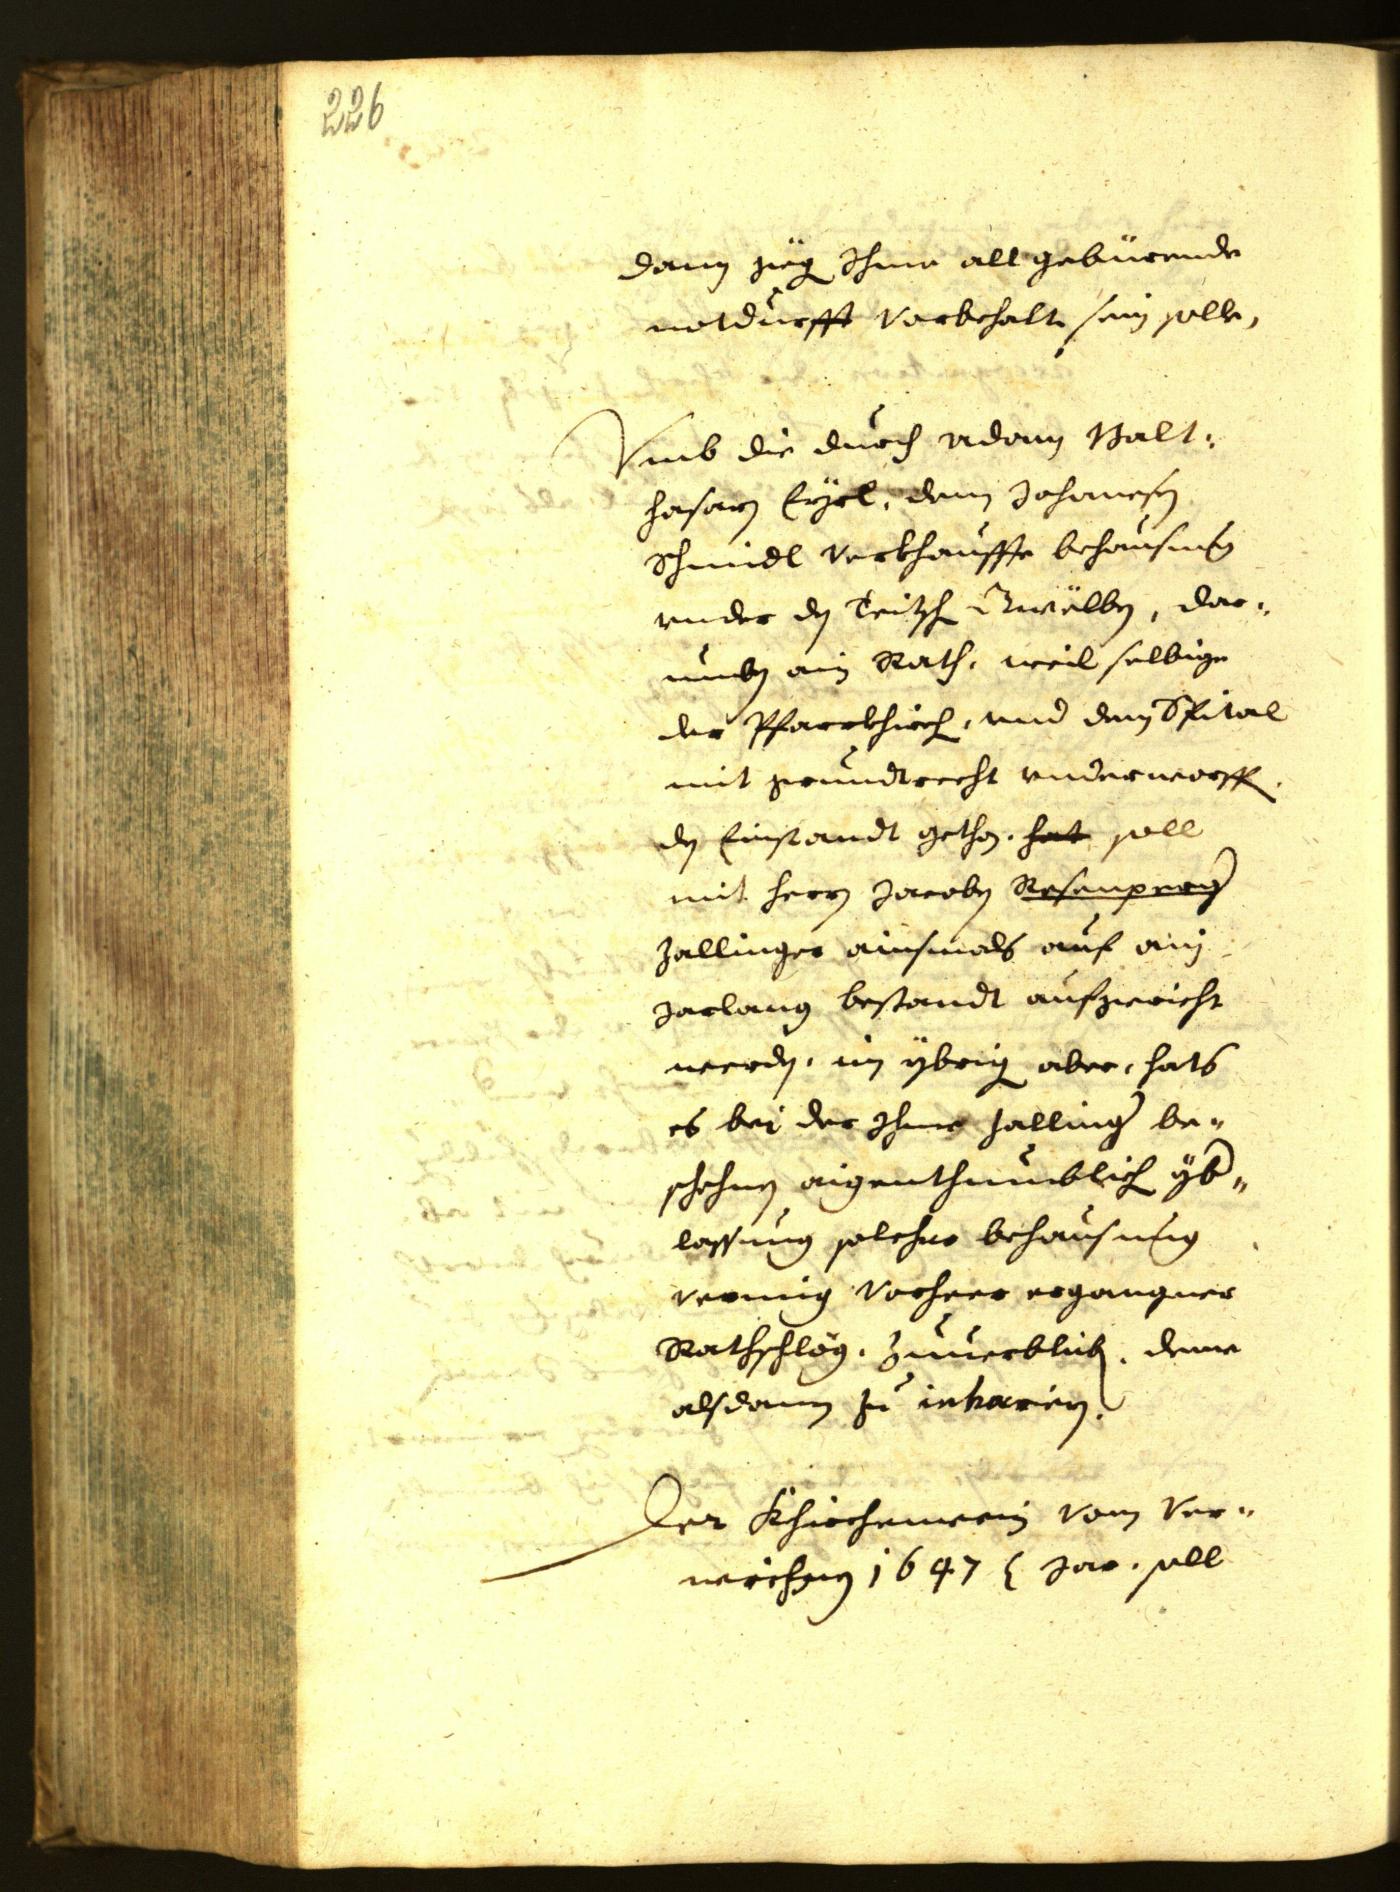 226
dann hieg Ihme all gebürende
notdurfft vorbehalt sein solle,
Vmb die durch Adam Balt:
hasarn Eyrl, dem Johannesen
Schmidl verkhauffte behausung
vnder den Teitschen Gwölben, dar-
umben ain Rath, weil selbige
der Pfarrkhirch, vnd dem Spital
mit grundtrecht vnderworffen,
den Einstandt gethon, hat soll
mit herrn Jacoben Rosenperger
Zallinger ainsmals auf ain
Jarlang bestandt aufgericht
werden, im ybrigen aber, hats
es bei der Ihme Zallinger be-
schehnen aigenthumblichen yber-
lassung solcher behausung
vermig vorheer ergangner
Rathschlög, zuuerbliben, deme
alsdann zu inharirn.
Der Khirchenwein vom ver-
wichnen 1647 Jar, soll